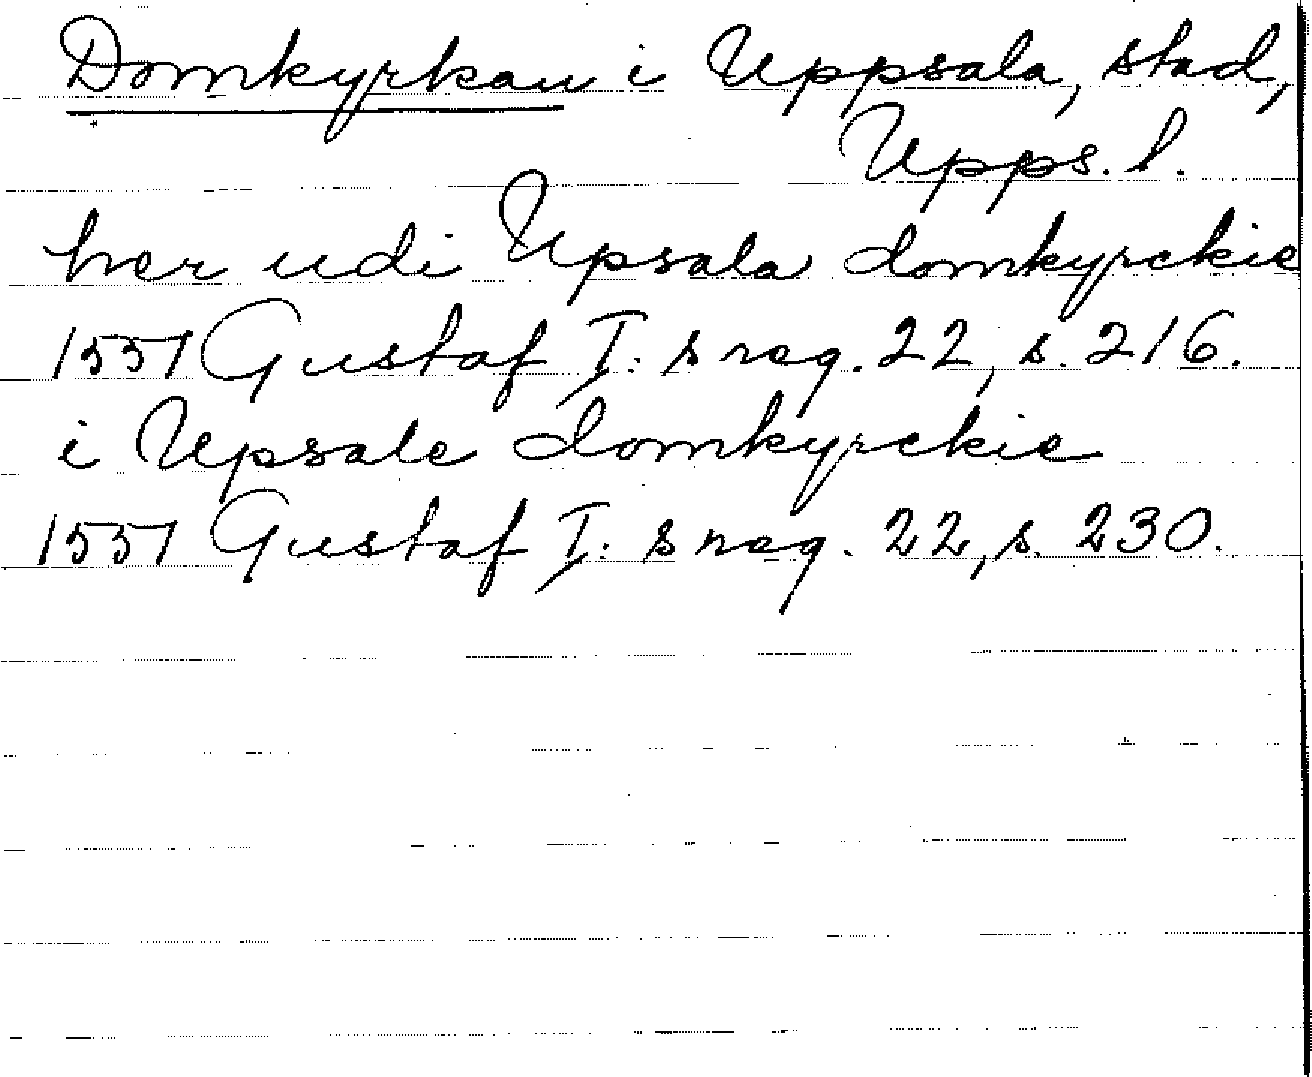 Domkyrkan i Uppsala, stad,
Upps. l.
her udi Upsala domkyrckie
1557 Gustaf I: s reg. 22, s. 216.
i Upsale domkyrckie
1557 Gustaf I: s reg. 22, s. 230.